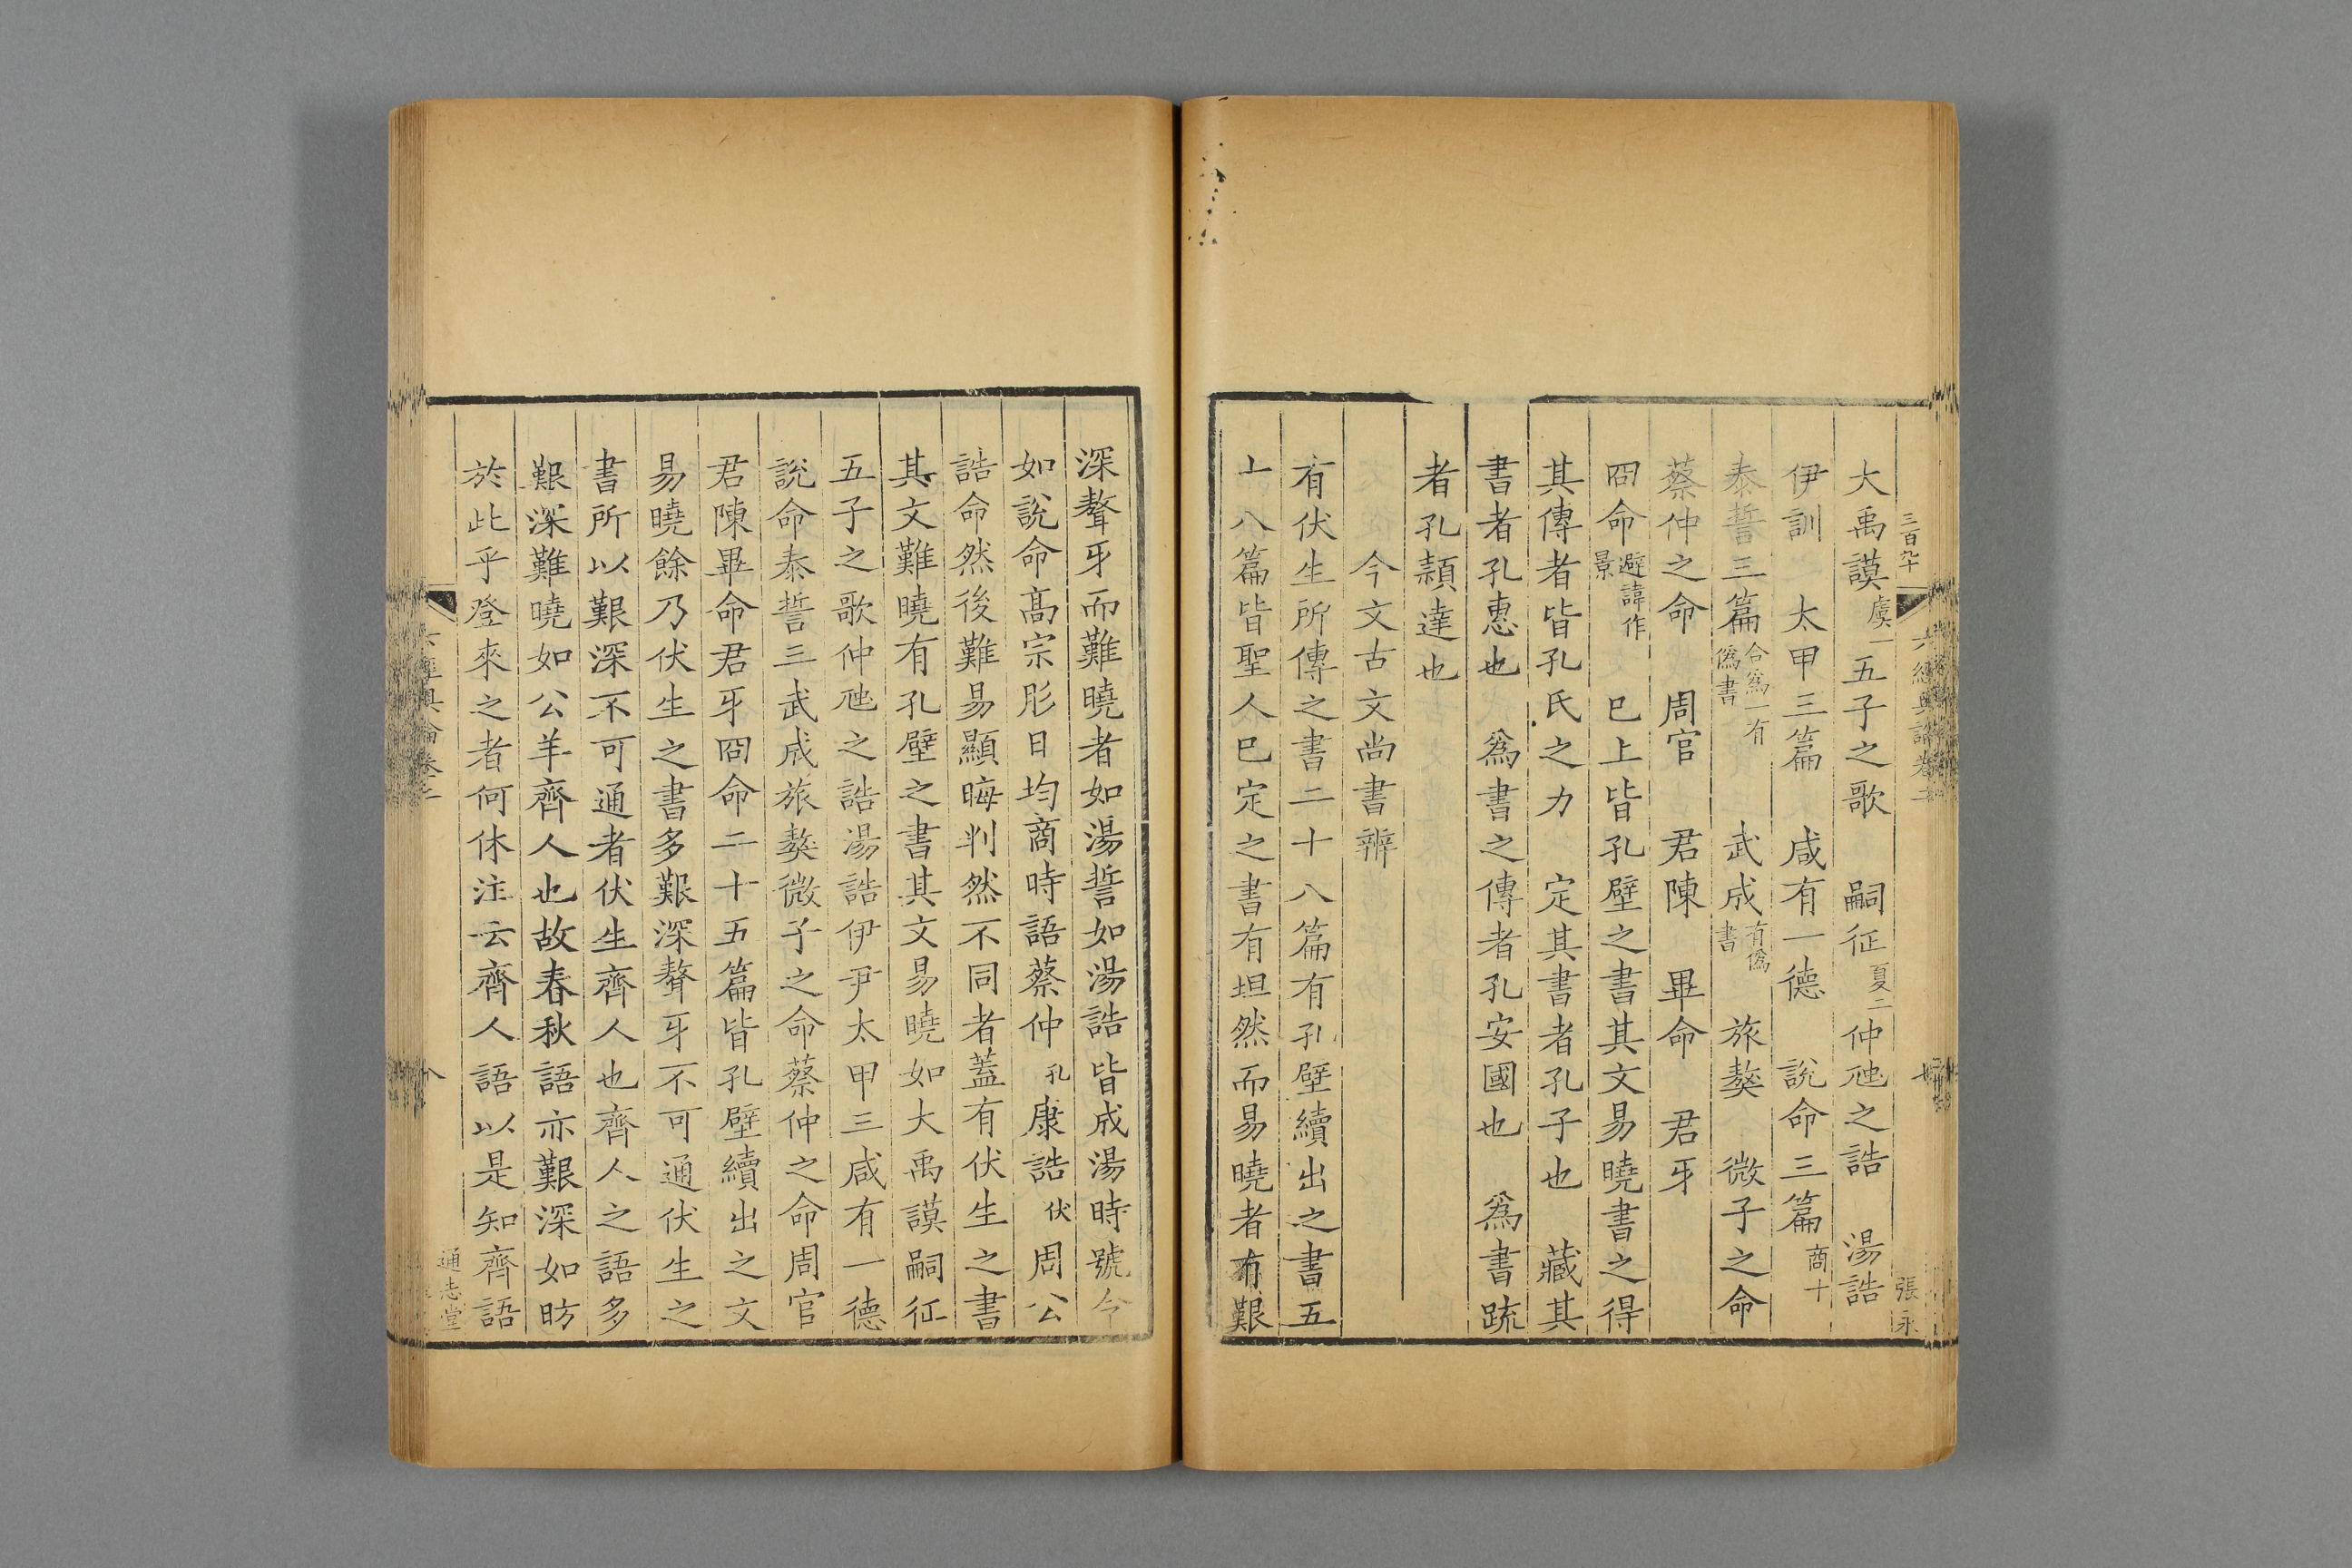 大禹謨虞一五子之歌 嗣征夏二仲虺之誥 湯誥
伊訓 太甲三篇 咸有一德 說命三篇商十
泰誓三篇合為一有僞書 武成有僞書 旅獒 微子之命
蔡仲之命 周官 君陳 畢命 君牙
冏命避諱作景 巳上皆孔壁之書其文易曉書之得
其傳者皆孔氏之力 定其書者孔子也 藏其
書者孔惠也 爲書之傳者孔安國也 爲書䟽
者孔頴達也
今文古文尚書辨
有伏生所傳之書二十八篇有孔壁續出之書五
十八篇皆聖人巳定之書有坦然而易曉者有艱
張永
深聱牙而難曉者如湯誓如湯誥皆成湯時號令
如說命高宗肜日均商時語蔡仲孔康誥伏周公
誥命然後難易顯晦判然不同者蓋有伏生之書
其文難曉有孔壁之書其文易曉如大禹謨嗣征
五子之歌仲虺之誥湯誥伊尹太甲三咸有一德
說命泰誓三武成旅獒微子之命蔡仲之命周官
君陳畢命君牙冏命二十五篇皆孔壁續出之文
易曉餘乃伏生之書多艱深聱牙不可通伏生之
書所以艱深不可通者伏生齊人也齊人之語多
艱深難曉如公羊齊人也故春秋語亦艱深如昉
於此乎登來之者何休注云齊人語以是知齊語
六經奧論卷二
八
通志堂